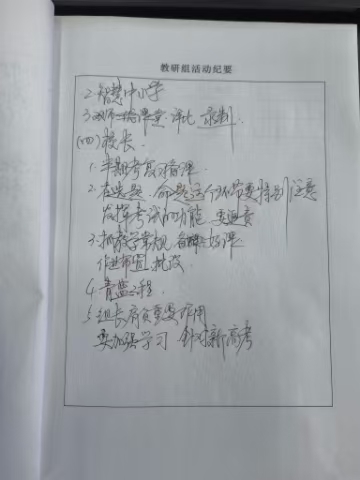 教研组活动纪要
2.智慧中小学
3.双师课堂.评比 录制.
(四)校长.
1.半期考复习备课.
2.在选题.命题这个环节要特别注意
发挥考试的功能
3.抓教学常规 备好课.
作业布置.批改
4.青蓝工程.
5.组长肩负重要作用
要加强学习 针对新高考